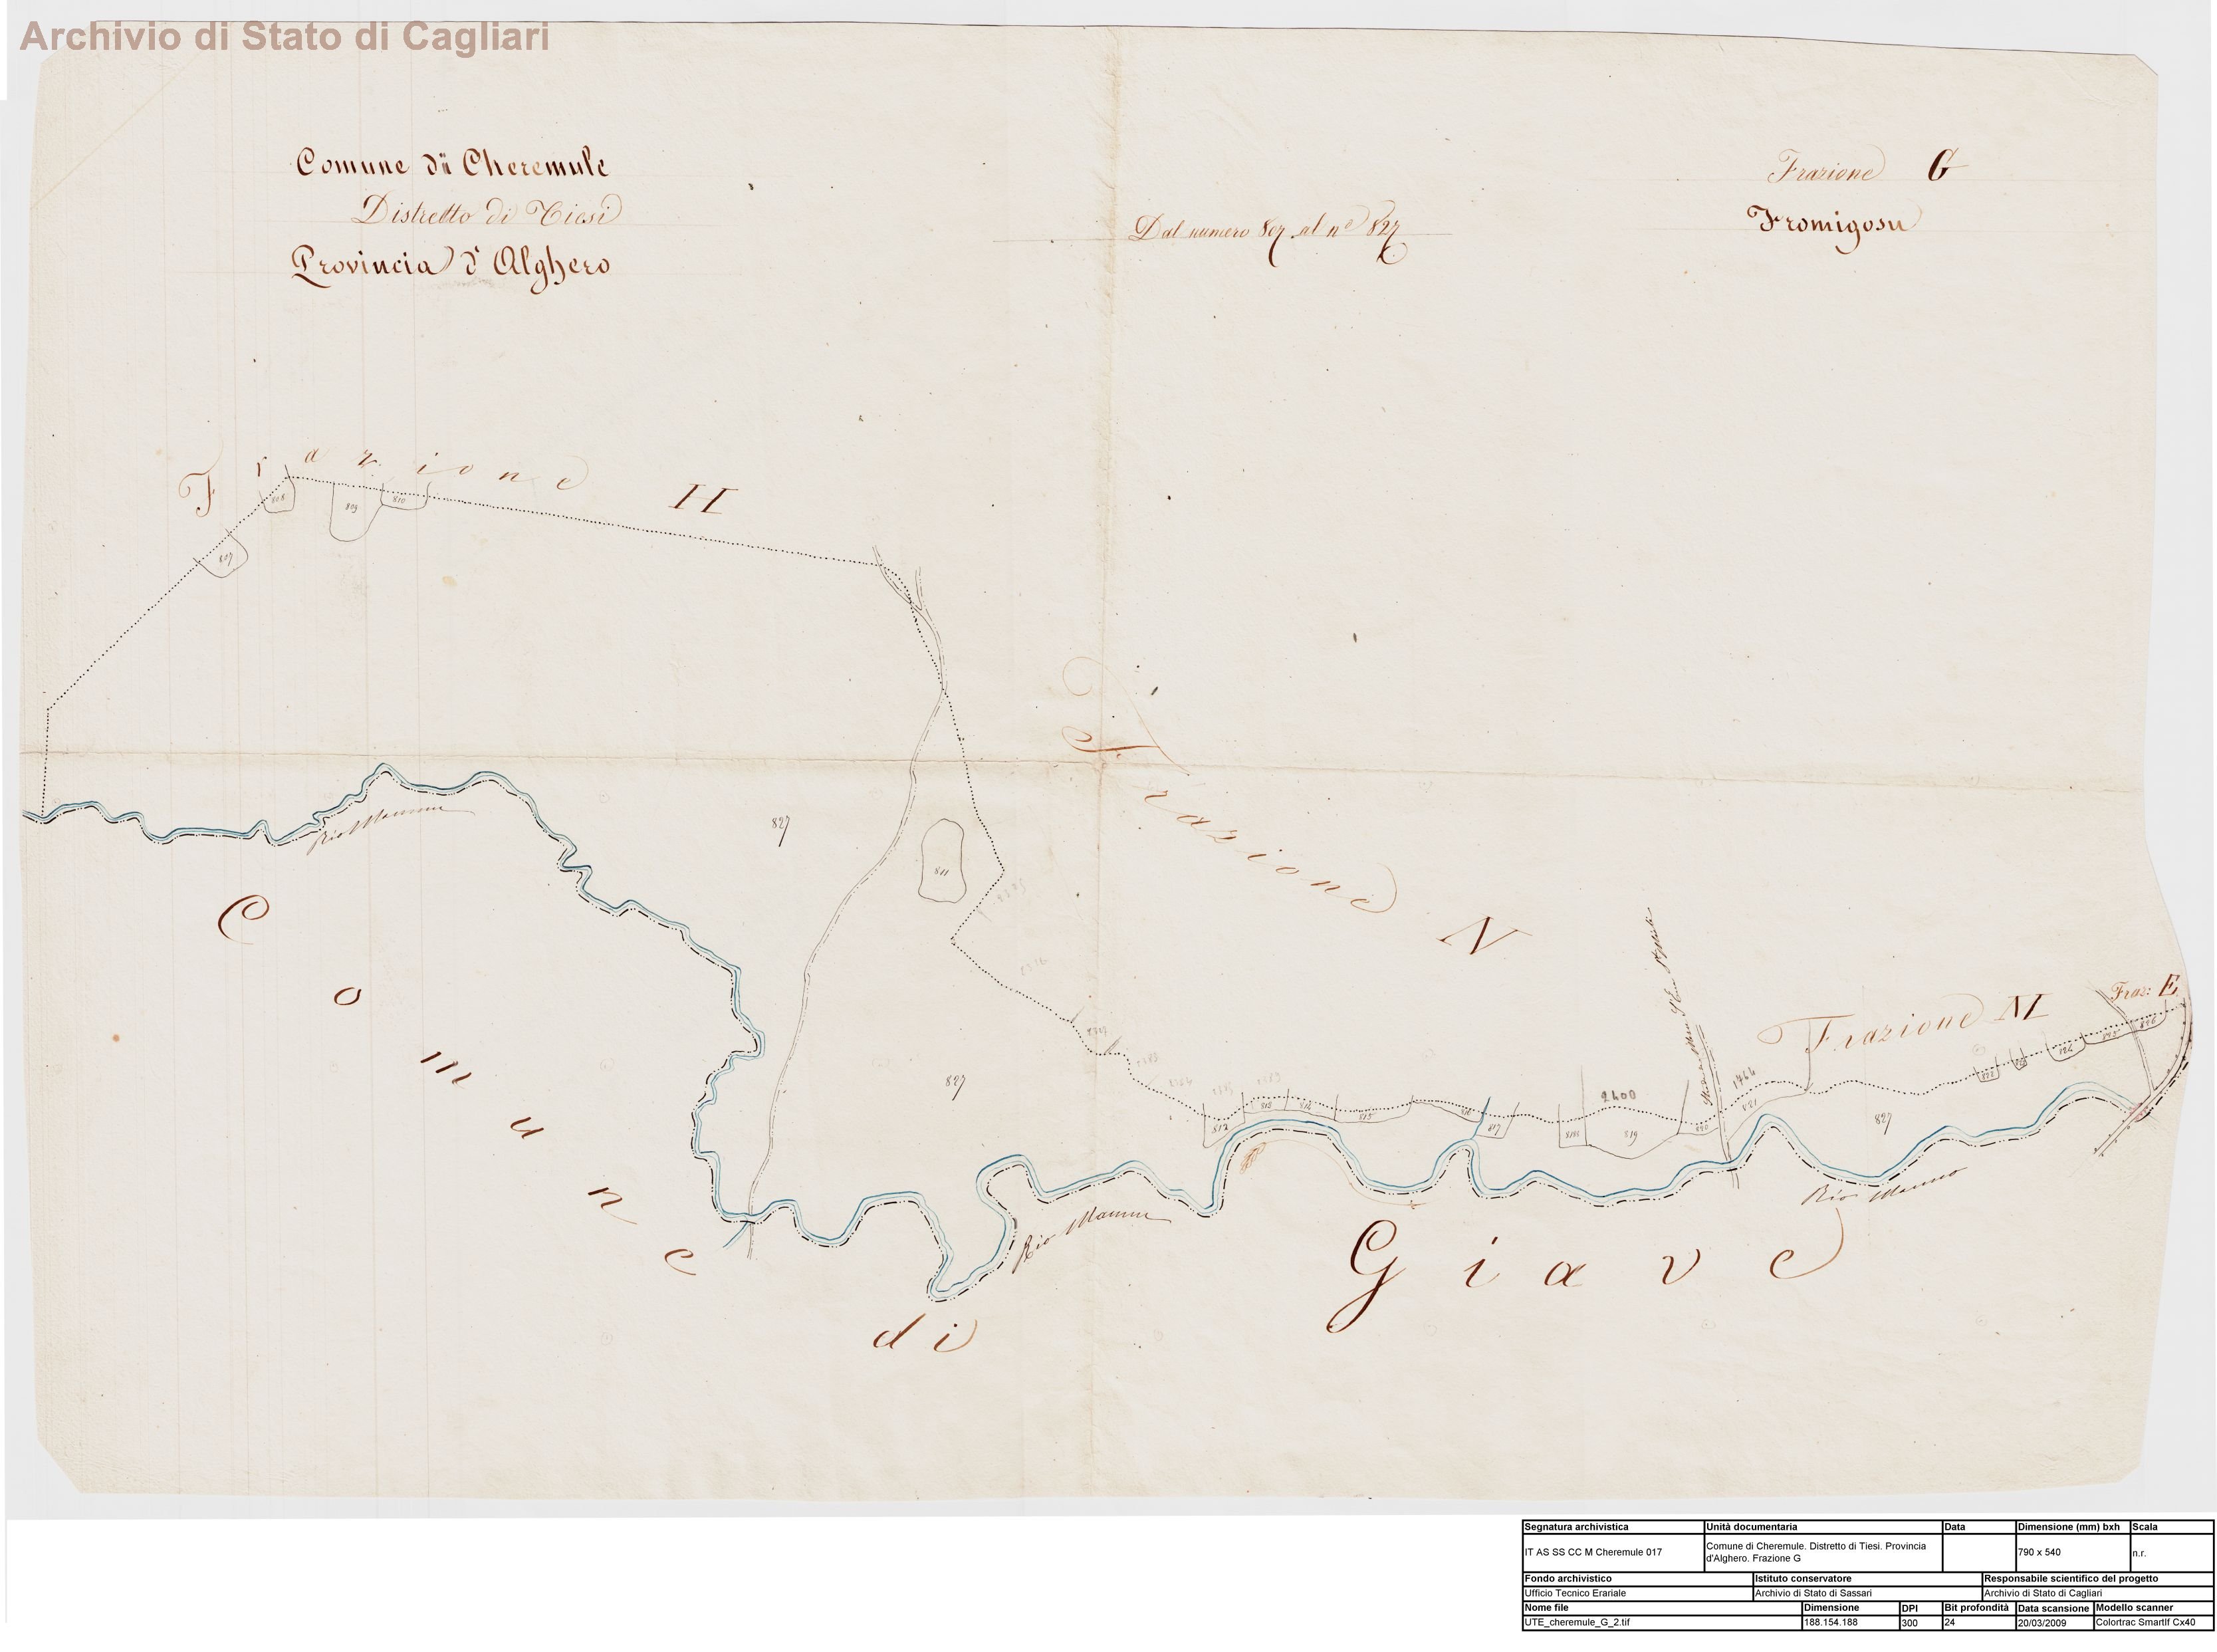 Archivio di Stato di Cagliari
Comune di Cheremule
Distretto di Tiesi
Provincia d'Alghero
Dal numero 807 al nº 827
Frazione G
Fromigosu
Frazione H
808
809
810
807
Frazione N
827
811
827
Rio Mannu
Frazione M
Fraz: E
2400
1764
812
813
814
815
816
817
818
819
820
821
827
822
824
825
826
Rio Mannu
Rio Mannu
Comune di Giave
Segnatura archivistica Unità documentaria Data Dimensione (mm) bxh Scala
IT AS SS CC M Cheremule 017 Comune di Cheremule. Distretto di Tiesi. Provincia d'Alghero. Frazione G 790 x 540 n.r.
Fondo archivistico Istituto conservatore Responsabile scientifico del progetto
Ufficio Tecnico Erariale Archivio di Stato di Sassari Archivio di Stato di Cagliari
Nome file Dimensione DPI Bit profondità Data scansione Modello scanner
UTE_cheremule_G_2.tif 188.154.188 300 24 20/03/2009 Colortrac Smartlf Cx40